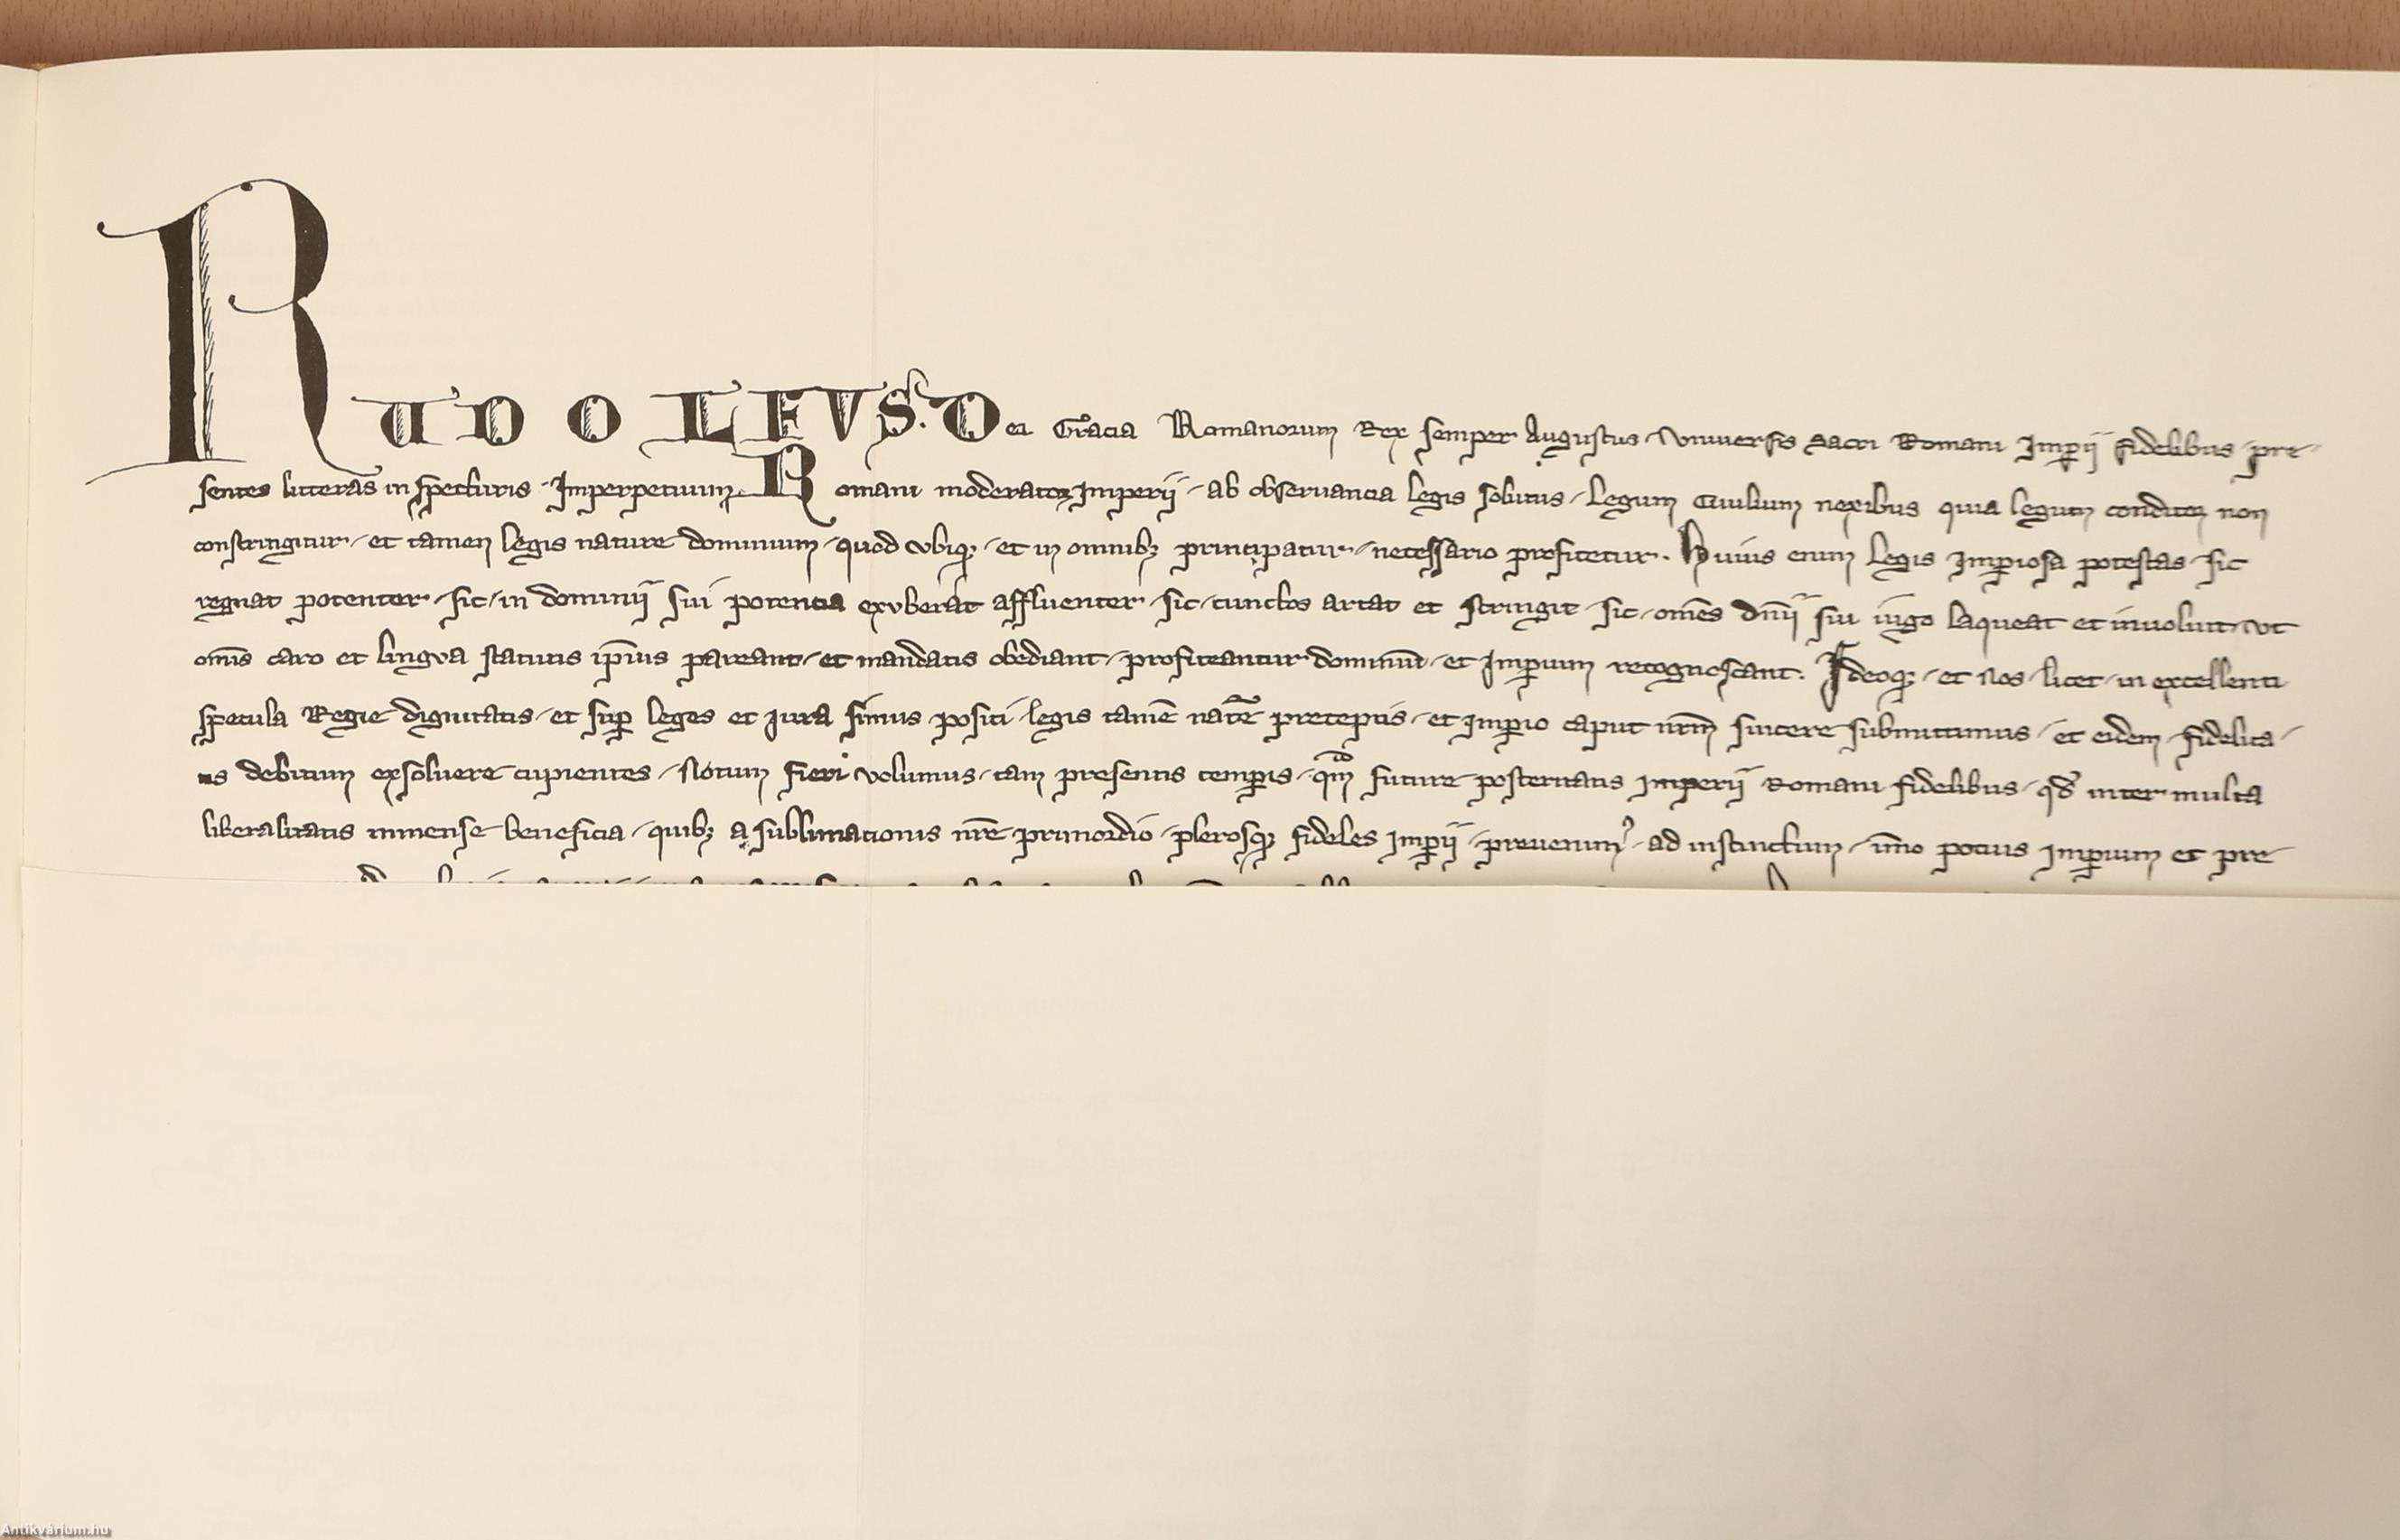 RUDOLFVS. Dei Gracia Romanorum Rex semper Augustus / Vniuersis Sacri Romani Imperii fidelibus / pre-
sentes litteras inspecturis / Imperpetuum. Romani moderator Imperii / ab obseruancia legis solutus / Legum Ciuilium nexibus quia legum conditor non
constringitur / et tamen legis nature dominium / quod vbiq; / et in omnib; principatur / necessario profitetur. Huius enim Legis Imp̄iosa potestas / sic
regnat potenter / sic / in dominii sui potencia exvberat affluenter / sic / cunctos artat et stringit / sic / om̄es dn̄ii sui iugo laqueat et inuoluit / vt
om̄is caro et lingva statutis ip̄ius pareant / et mandatis obediant / profiteantur dominiū / et Imp̄ium recognoscant. Ideoq; / et Nos / licet / in excellenti
specula Regie dignitatis / et sup̄ leges et Jura simus positi / legis tamē nat̄re preceptis / et Imp̄io caput nr̄m sincere submittimus / et eidem / fidelita-
tis debitum exsoluere cupientes / Notum fieri volumus / tam presentis temp̄is / qᵃm future posteritatis Imperii Romani fidelibus / qd̄ inter multa
liberalitatis inmense beneficia / quib; a sublimacionis nr̄e primordio / plerosq; fideles Imp̄ii / preuenim⁹ / ad instinctum / im̄o pocius Imp̄ium et pre-
Antikvárium.hu